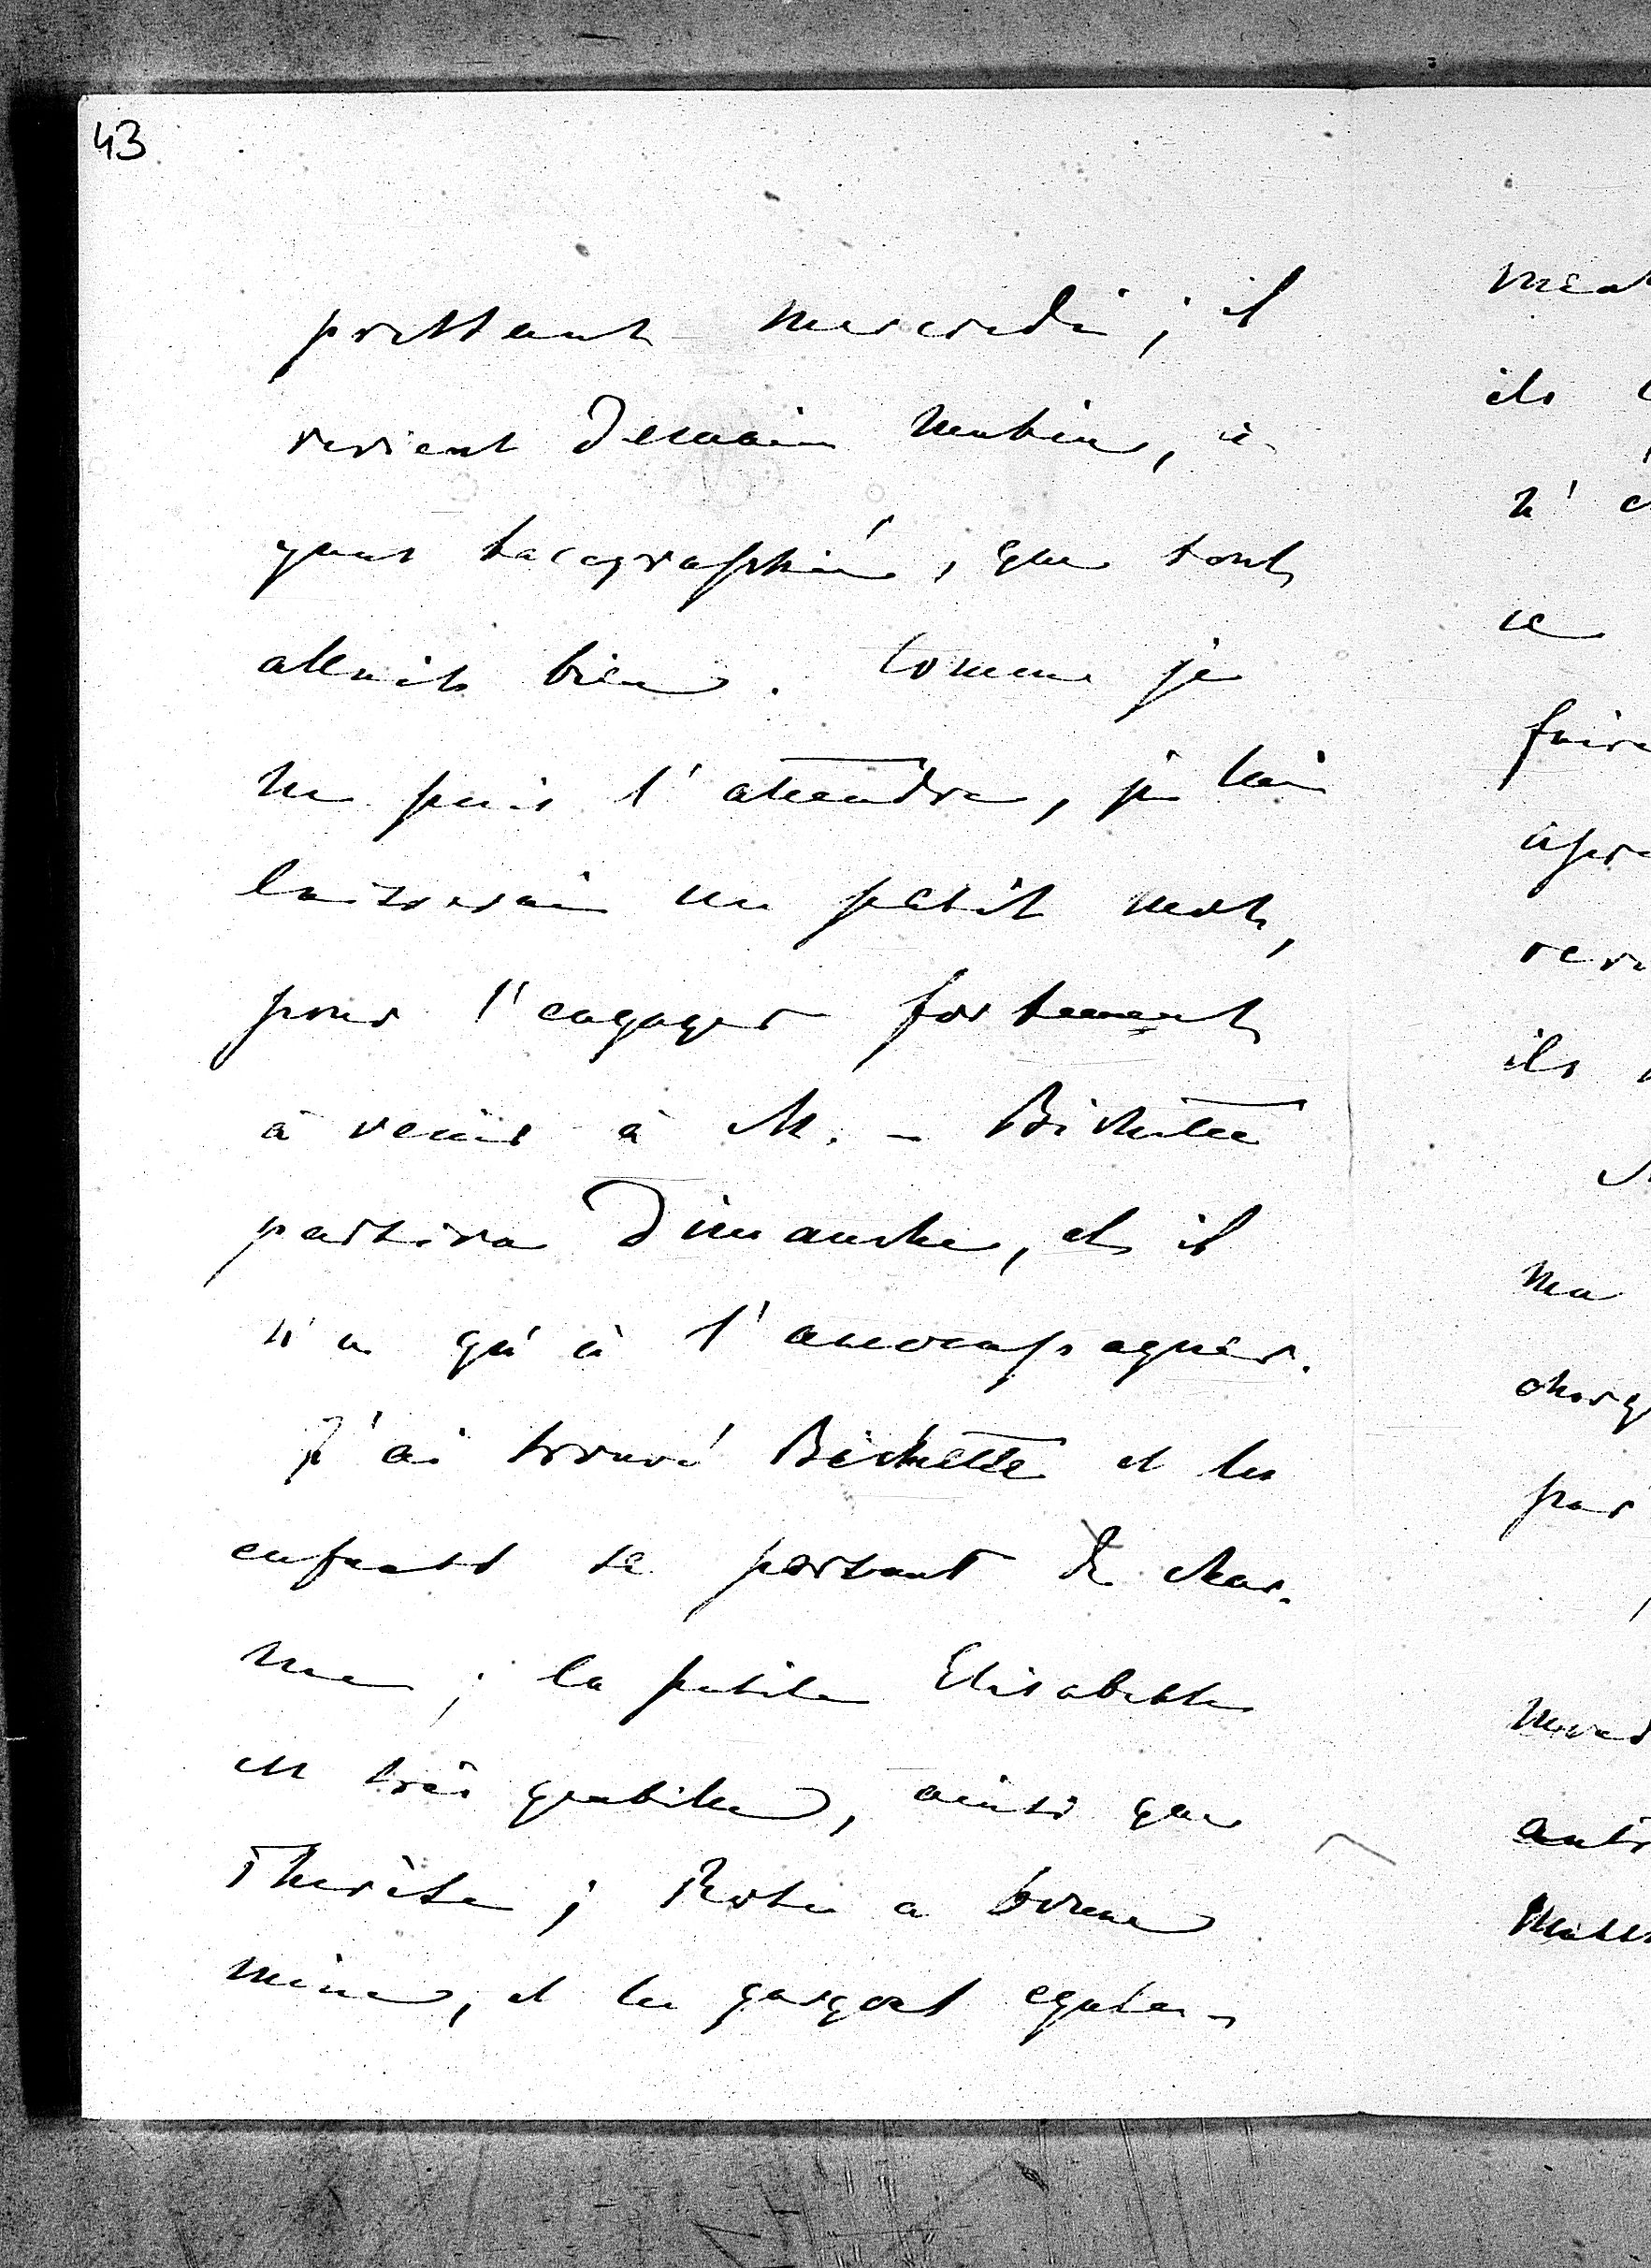 43
mercredi ; il
revient demain matin, à
, que tout
allait bien. Comme je
ne puis l'attendre, je lui
laisserai un petit mot,
pour l'engager fortement
à venir à M. - Bichette
partira Dimanche, et il
n'a qu'à l'accompagner.
J'ai trouvé Bichette et les
enfants se portant de char-
me ; la petite Elisabeth
est très gentille, ainsi que
Thérèse ; a bonne
mine, et les garçons egale-
ils
n'
ce
faire
ils
ma
par